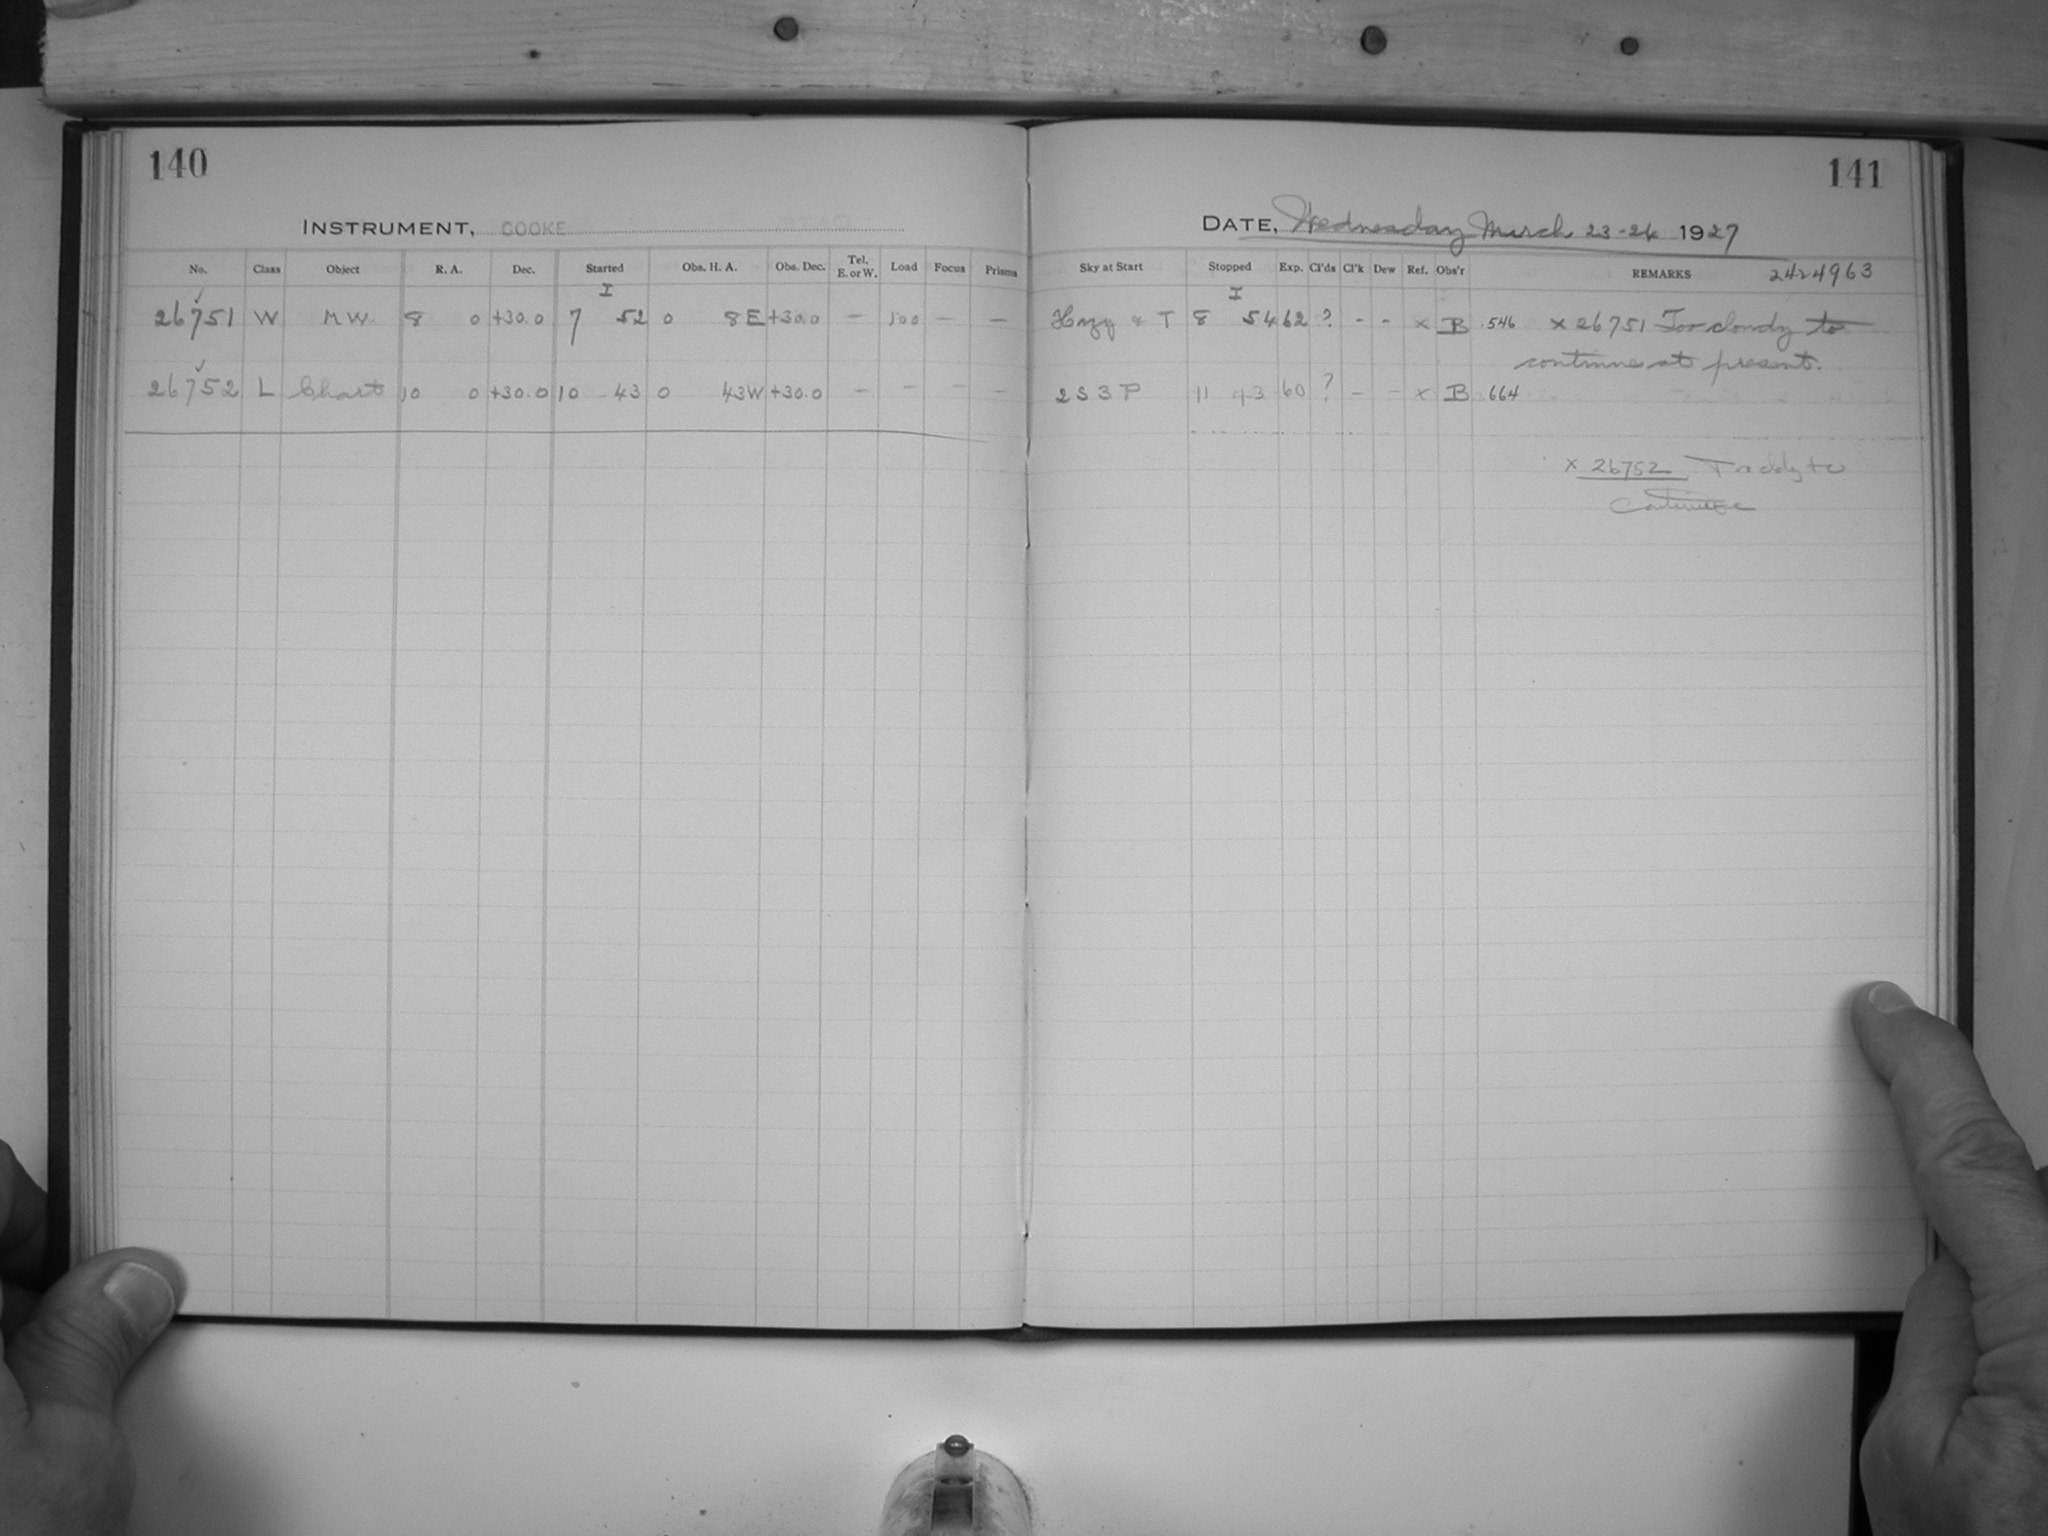 140
INSTRUMENT, COOKE
No. Class Object R. A. Dec. Started Obs. H. A. Obs. Dec. Tel. E. or W. Load Focus Prisms
I
26751 W MW. 8 0 +30.0 7 52 0 8E +30.0 — 100 — —
26752 L Chart 10 0 +30.0 10 43 0 43W +30.0 — — — —
141
DATE, Wednesday March 23-24 1927
Sky at Start Stopped Exp. Cl'ds Cl'k Dew Ref. Obs'r REMARKS 2424963
I
Hazy & T 8 54 62 ? - - x B .546 x 26751 Too cloudy to
continue at present.
2 S 3 P 11 43 60 ? - - x B .664
x 26752 Too cldy to
Continue